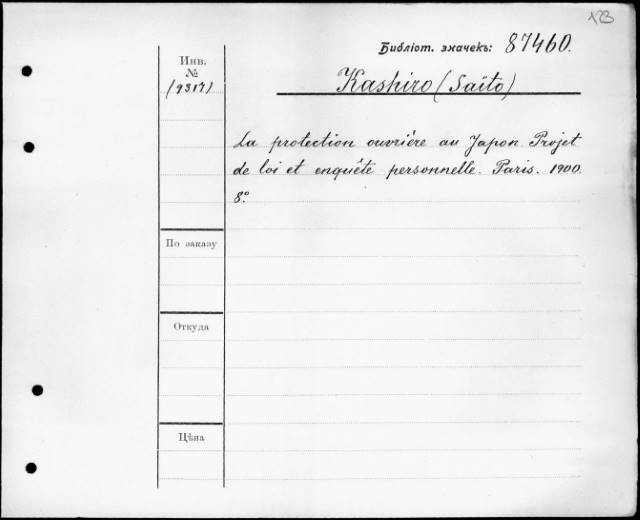 123
Библіот. значекъ: 87460.
Инв.
№
(9317)
Kashiro (Saïto)
La protection ouvrière au Japon. Projet
de loi et enquête personnelle. Paris. 1900.
8º
По заказу
Откуда
Цѣна